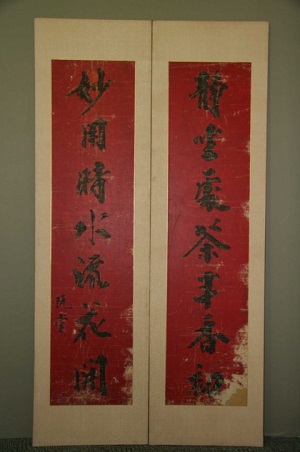 靜坐處茶半香初
妙用時水流花開
阮堂